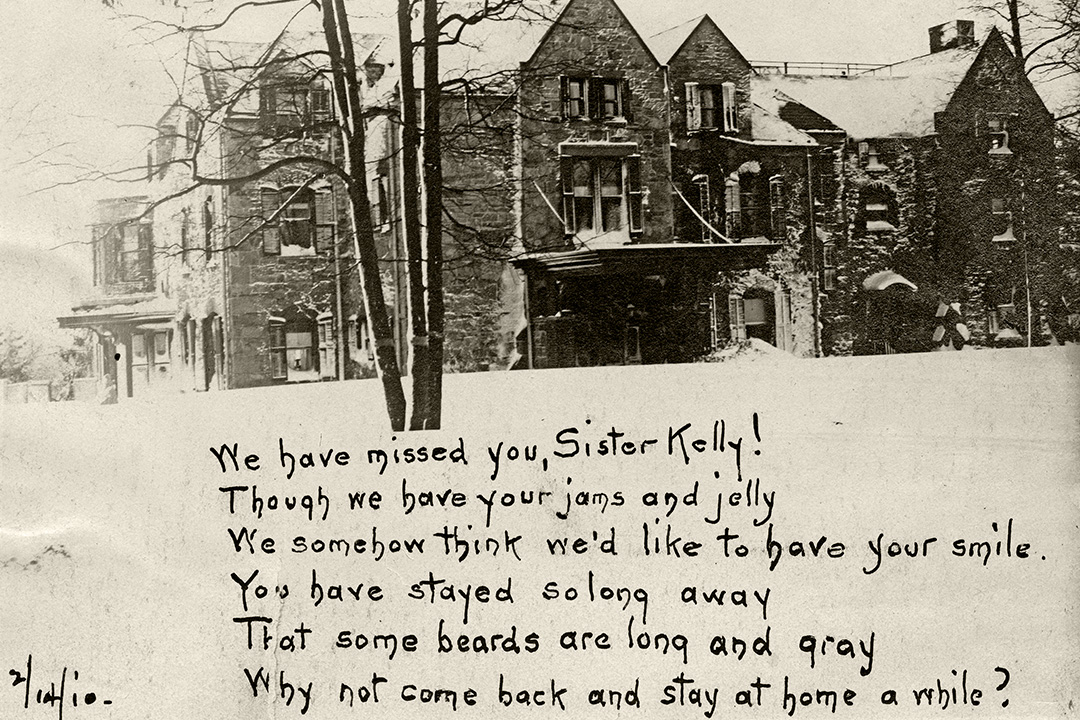 We have missed you, Sister Kelly!
Though we have your jams and jelly
We somehow think we'd like to have your smile.
You have stayed so long away
That some beards are long and gray
Why not come back and stay at home a while?
2/14/10.